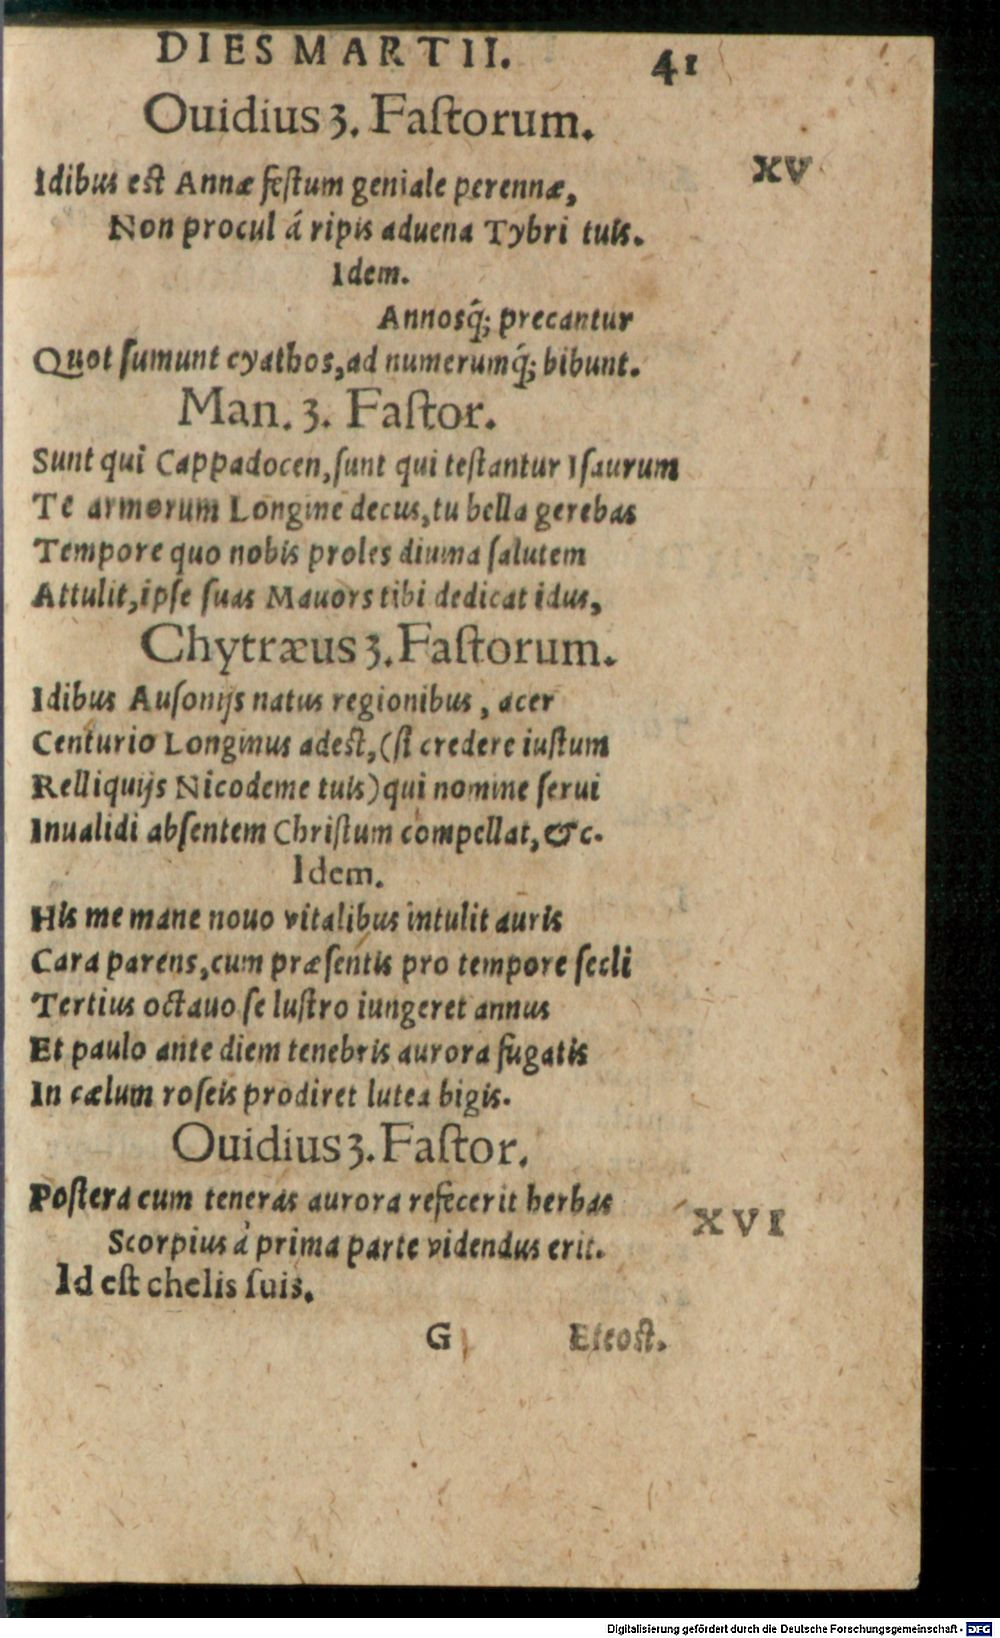 DIES MARTII. 41
Ouidius 3. Faſtorum.
XV
Idibus est Annæ feſtum geniale perennæ,
Non procul á ripis aduena Tybri tuis.
Idem.
Annosq́; precantur
Quot ſumunt cyathos, ad numerumq́; bibunt.
Man. 3. Faſtor.
Sunt qui Cappadocen, ſunt qui teſtantur Iſaurum
Te armorum Longine decus, tu bella gerebas
Tempore quo nobis proles diuina ſalutem
Attulit, ipſe ſuas Mauors tibi dedicat idus,
Chytræus 3. Faſtorum.
Idibus Auſonijs natus regionibus, acer
Centurio Longinus adest, (ſi credere iuſtum
Relliquijs Nicodeme tuis) qui nomine ſerui
Inualidi abſentem Chriſtum compellat, &c.
Idem.
His me mane nouo vitalibus intulit auris
Cara parens, cum præſentis pro tempore ſecli
Tertius octauo ſe luſtro iungeret annus
Et paulo ante diem tenebris aurora fugatis
In cælum roſeis prodiret lutea bigis.
Ouidius 3. Faſtor.
Poſtera cum teneras aurora refecerit herbas
XVI
Scorpius á prima parte videndus erit.
Id est chelis ſuis.
G Eteost.
Digitalisierung gefördert durch die Deutsche Forschungsgemeinschaft - DFG